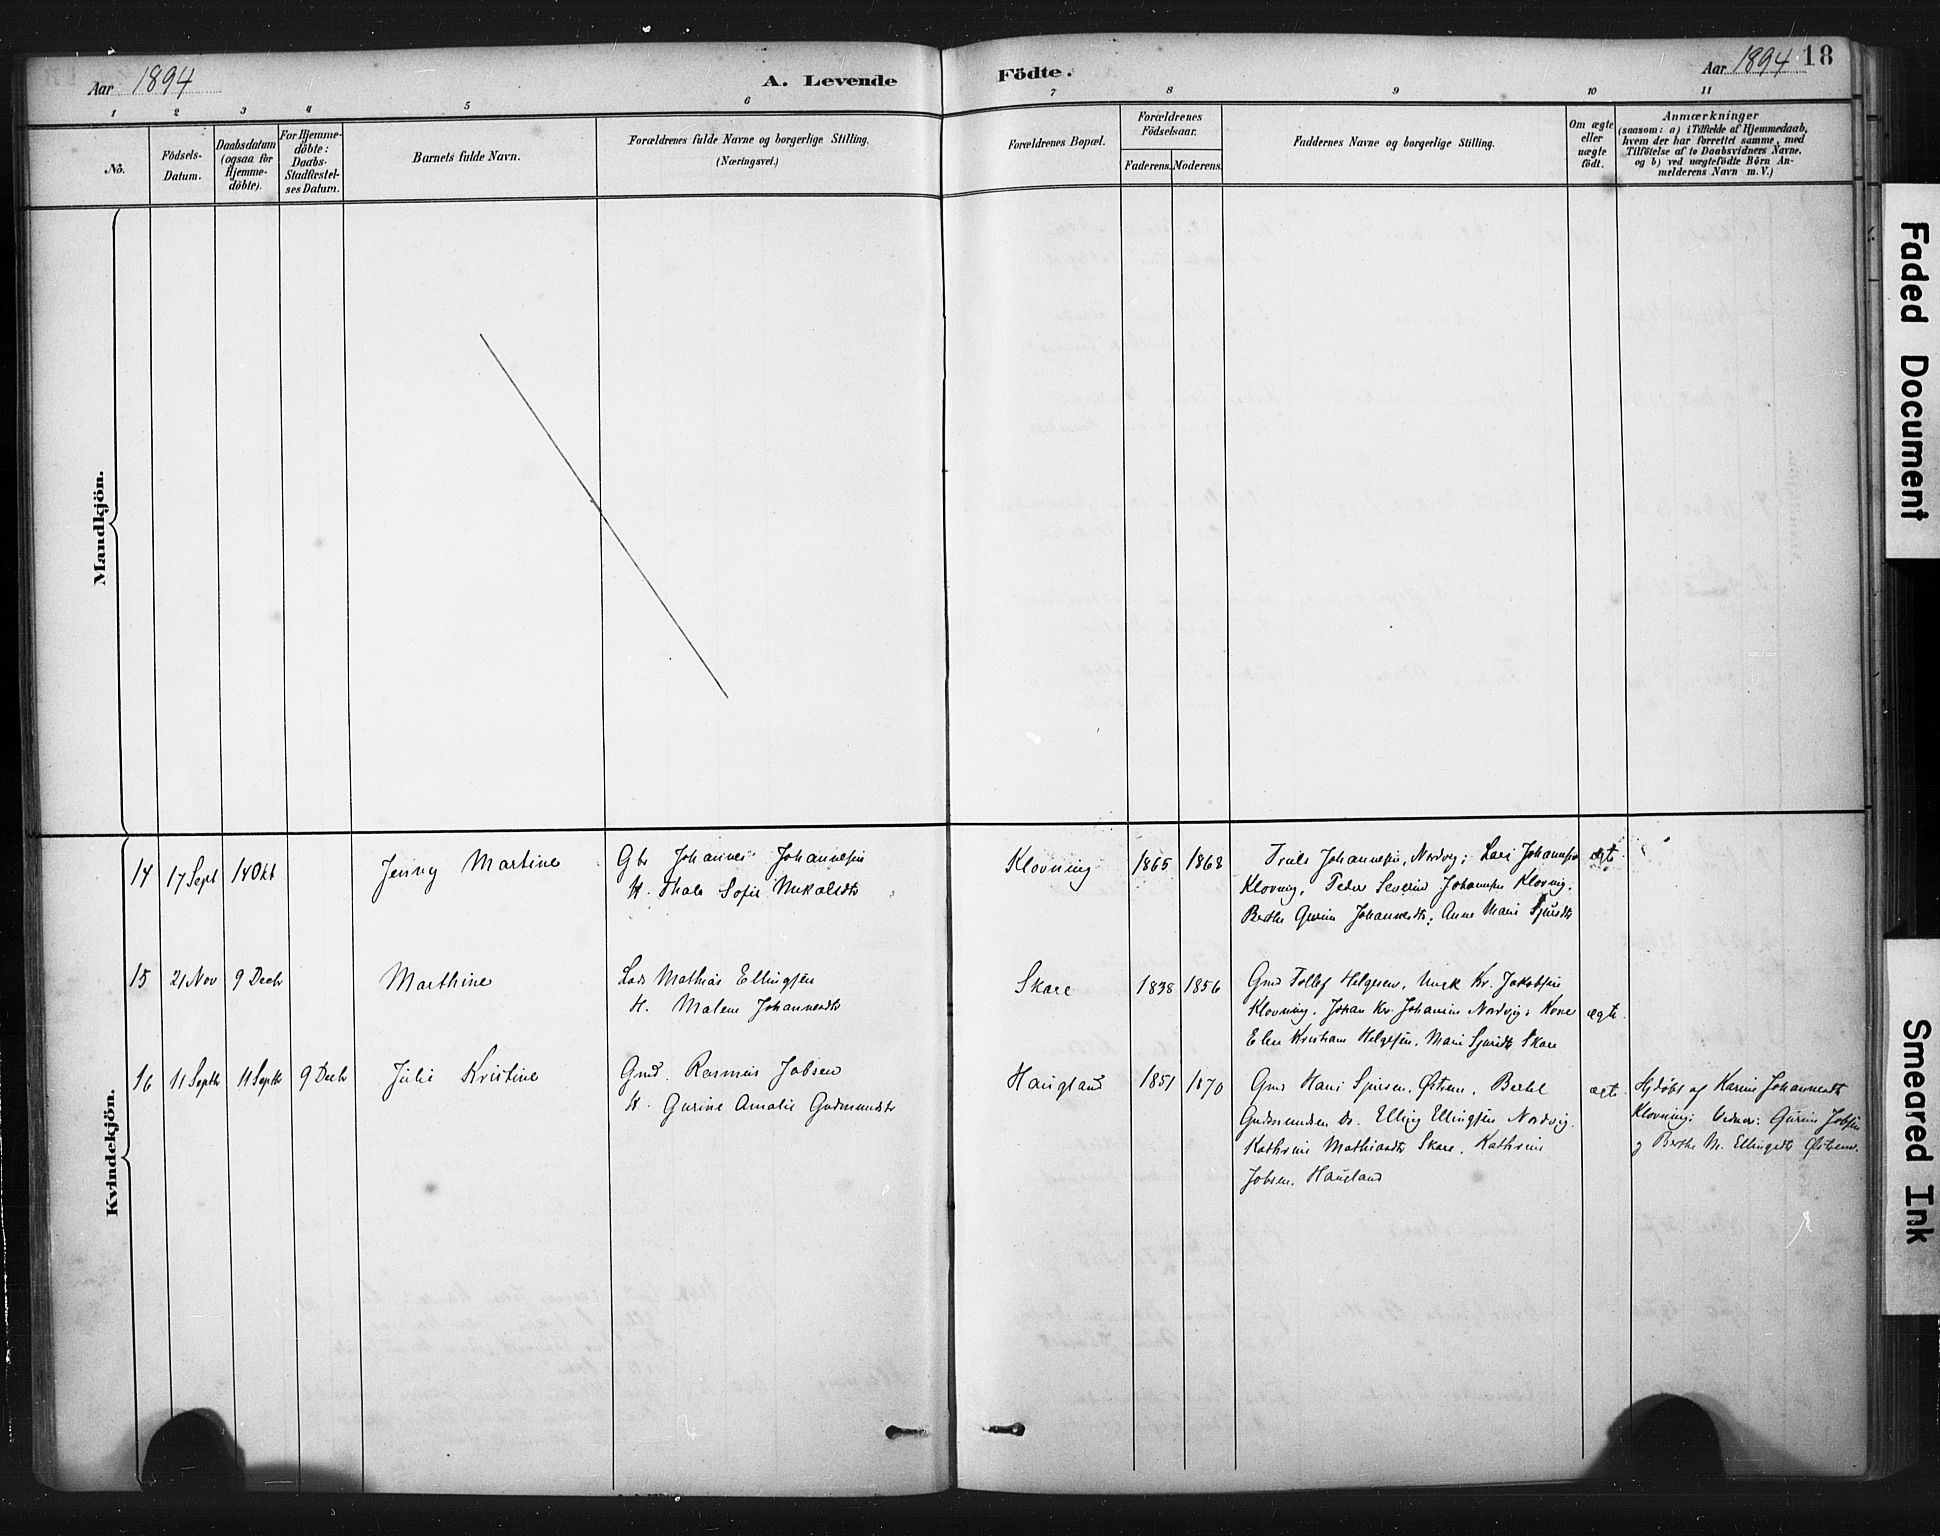 Aar 1894
A. Levende Födte.
Aar 1894 18
1 2 3 4 5 6 7 8 9 10 11
No.
Födsels-
Datum.
Daabsdatum
(ogsaa for
Hjemme-
döbte).
For Hjemme-
döbte:
Daabs-
Stadfæstel-
ses Datum.
Barnets fulde Navn.
Forældrenes fulde Navne og borgerlige Stilling.
(Næringsvei.)
Forældrenes Bopæl.
Forældrenes
Födselsaar.
Faderens. Moderens.
Faddernes Navne og borgerlige Stilling.
Om ægte
eller
uægte
födt.
Anmærkninger
(saasom: a) i Tilfælde af Hjemmedaab,
hvem der har forrettet samme, med
Tilföielse af to Daabsvidners Navne,
og b) ved uægtefödte Börn An-
melderens Navn m. V.)
Mandkjön.
Kvindekjön.
14 17 Sept 14 Okt Jenny Martine
Gbr Johannes Johannesen
H. Thala Sofie
Klovning 1865 1868
Truls Johannesen, Nordvig; Lars Johannesen
Klovning, Peder Severin Johannesen Klovnig.
Berthe Gurine Johannesdtr; Anne Marie Sjursdtr
ægte
15 21 Nov 9 Decbr Marthine
Lods Mathias Ellingsen
H. Malene Johannesdtr
Skare 1838 1856
Gmd Tollef Helgesen, Ungk Kr. Jakobsen
Klovning. Johan Kr. Johannesen Nordvig; Kone
Elen Kristiane Helgesen, Marie Sjursdtr Skare
ægte.
16 11 Septbr 11 Septbr 9 Decbr Julie Kristine
Gmd. Rasmus Jobsen
H. Gurine Amalie Gudmundsdtr
Haugland 1851 1870
Gmd Hans Sjursen, Østrem, Bertel
Gudmundsen Do. Elling Ellingsen Nordvig.
Kathrine Mathiasdtr Skare, Kathrine
Jobsen, Haugland
ægte.
Hjdøbt af Karine Johannesdtr
Klovning: Vidner: Gurine Jobsen
og Berthe M. Ellingsdtr Østrem.
Faded Document
Smeared Ink